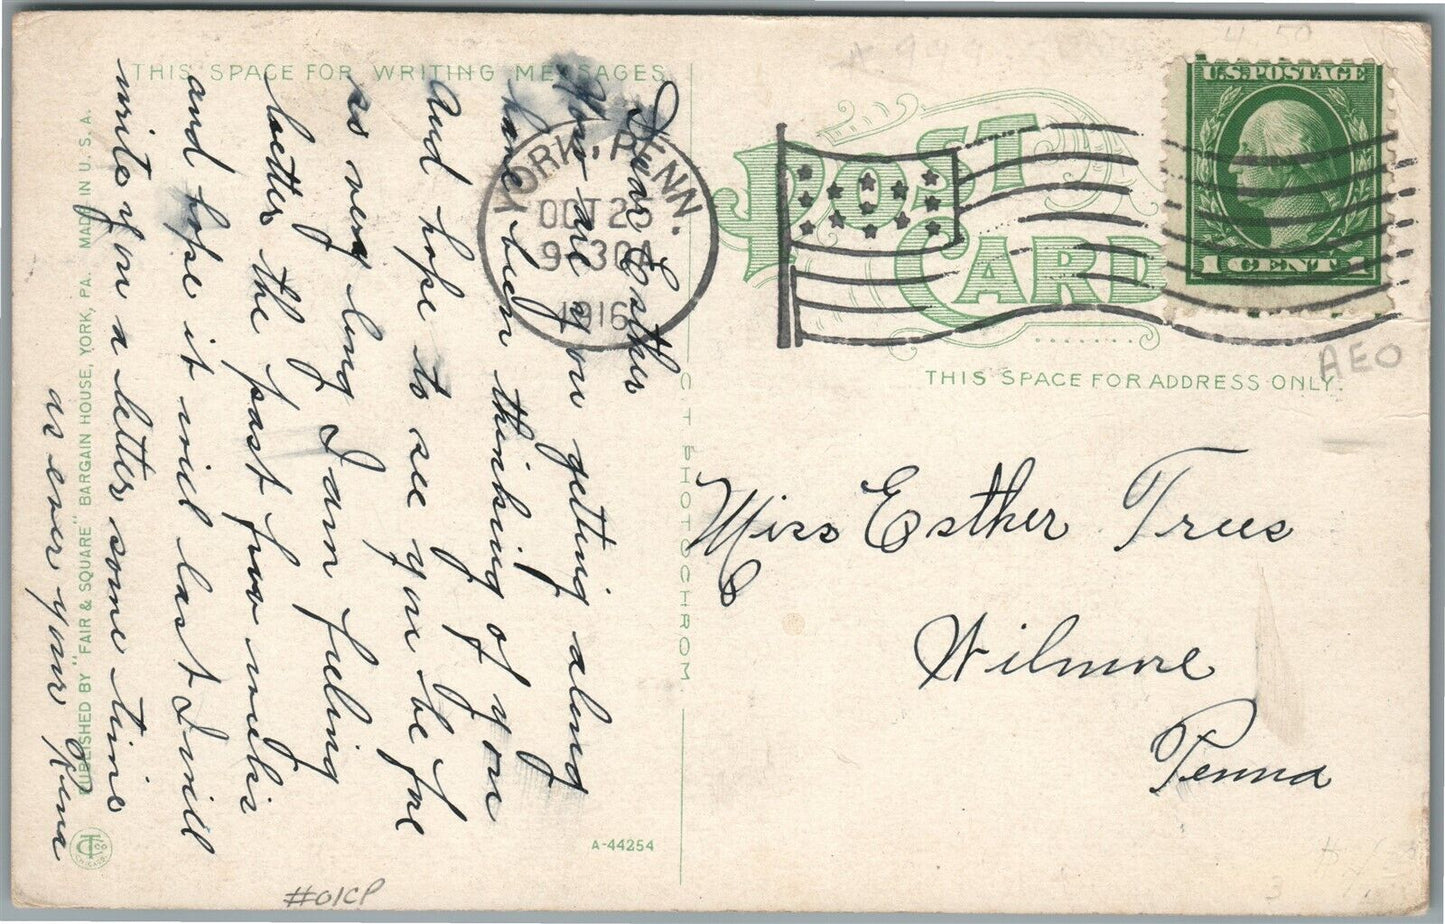 THIS SPACE FOR WRITING MESSAGES
Dear Esther
How are you getting along
have been thinking of you
and hope to see you before
so very long I am feeling
better the past few weeks
and hope it will last I will
write you a letter some time
as ever your Rena
PUBLISHED BY "FAIR & SQUARE" BARGAIN HOUSE, YORK, PA. MADE IN U. S. A.
YORK, PENN.
OCT 25
9-30A
1916
C. T. PHOTOCHROM.
A-44254
#01CP
POST CARD
U.S. POSTAGE
1 CENT 1
AEO
THIS SPACE FOR ADDRESS ONLY.
Miss Esther Trees
Wilmore
Penna